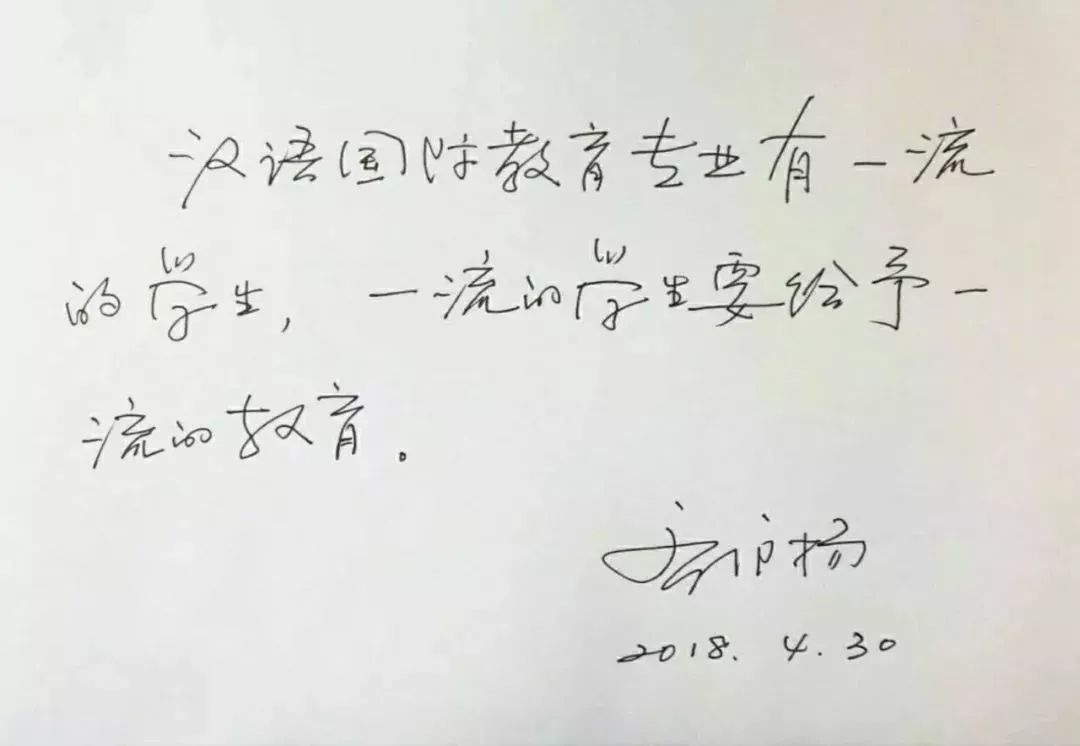 汉语国际教育专业有一流
的学生，一流的学生要给予一
流的教育。
2018.4.30